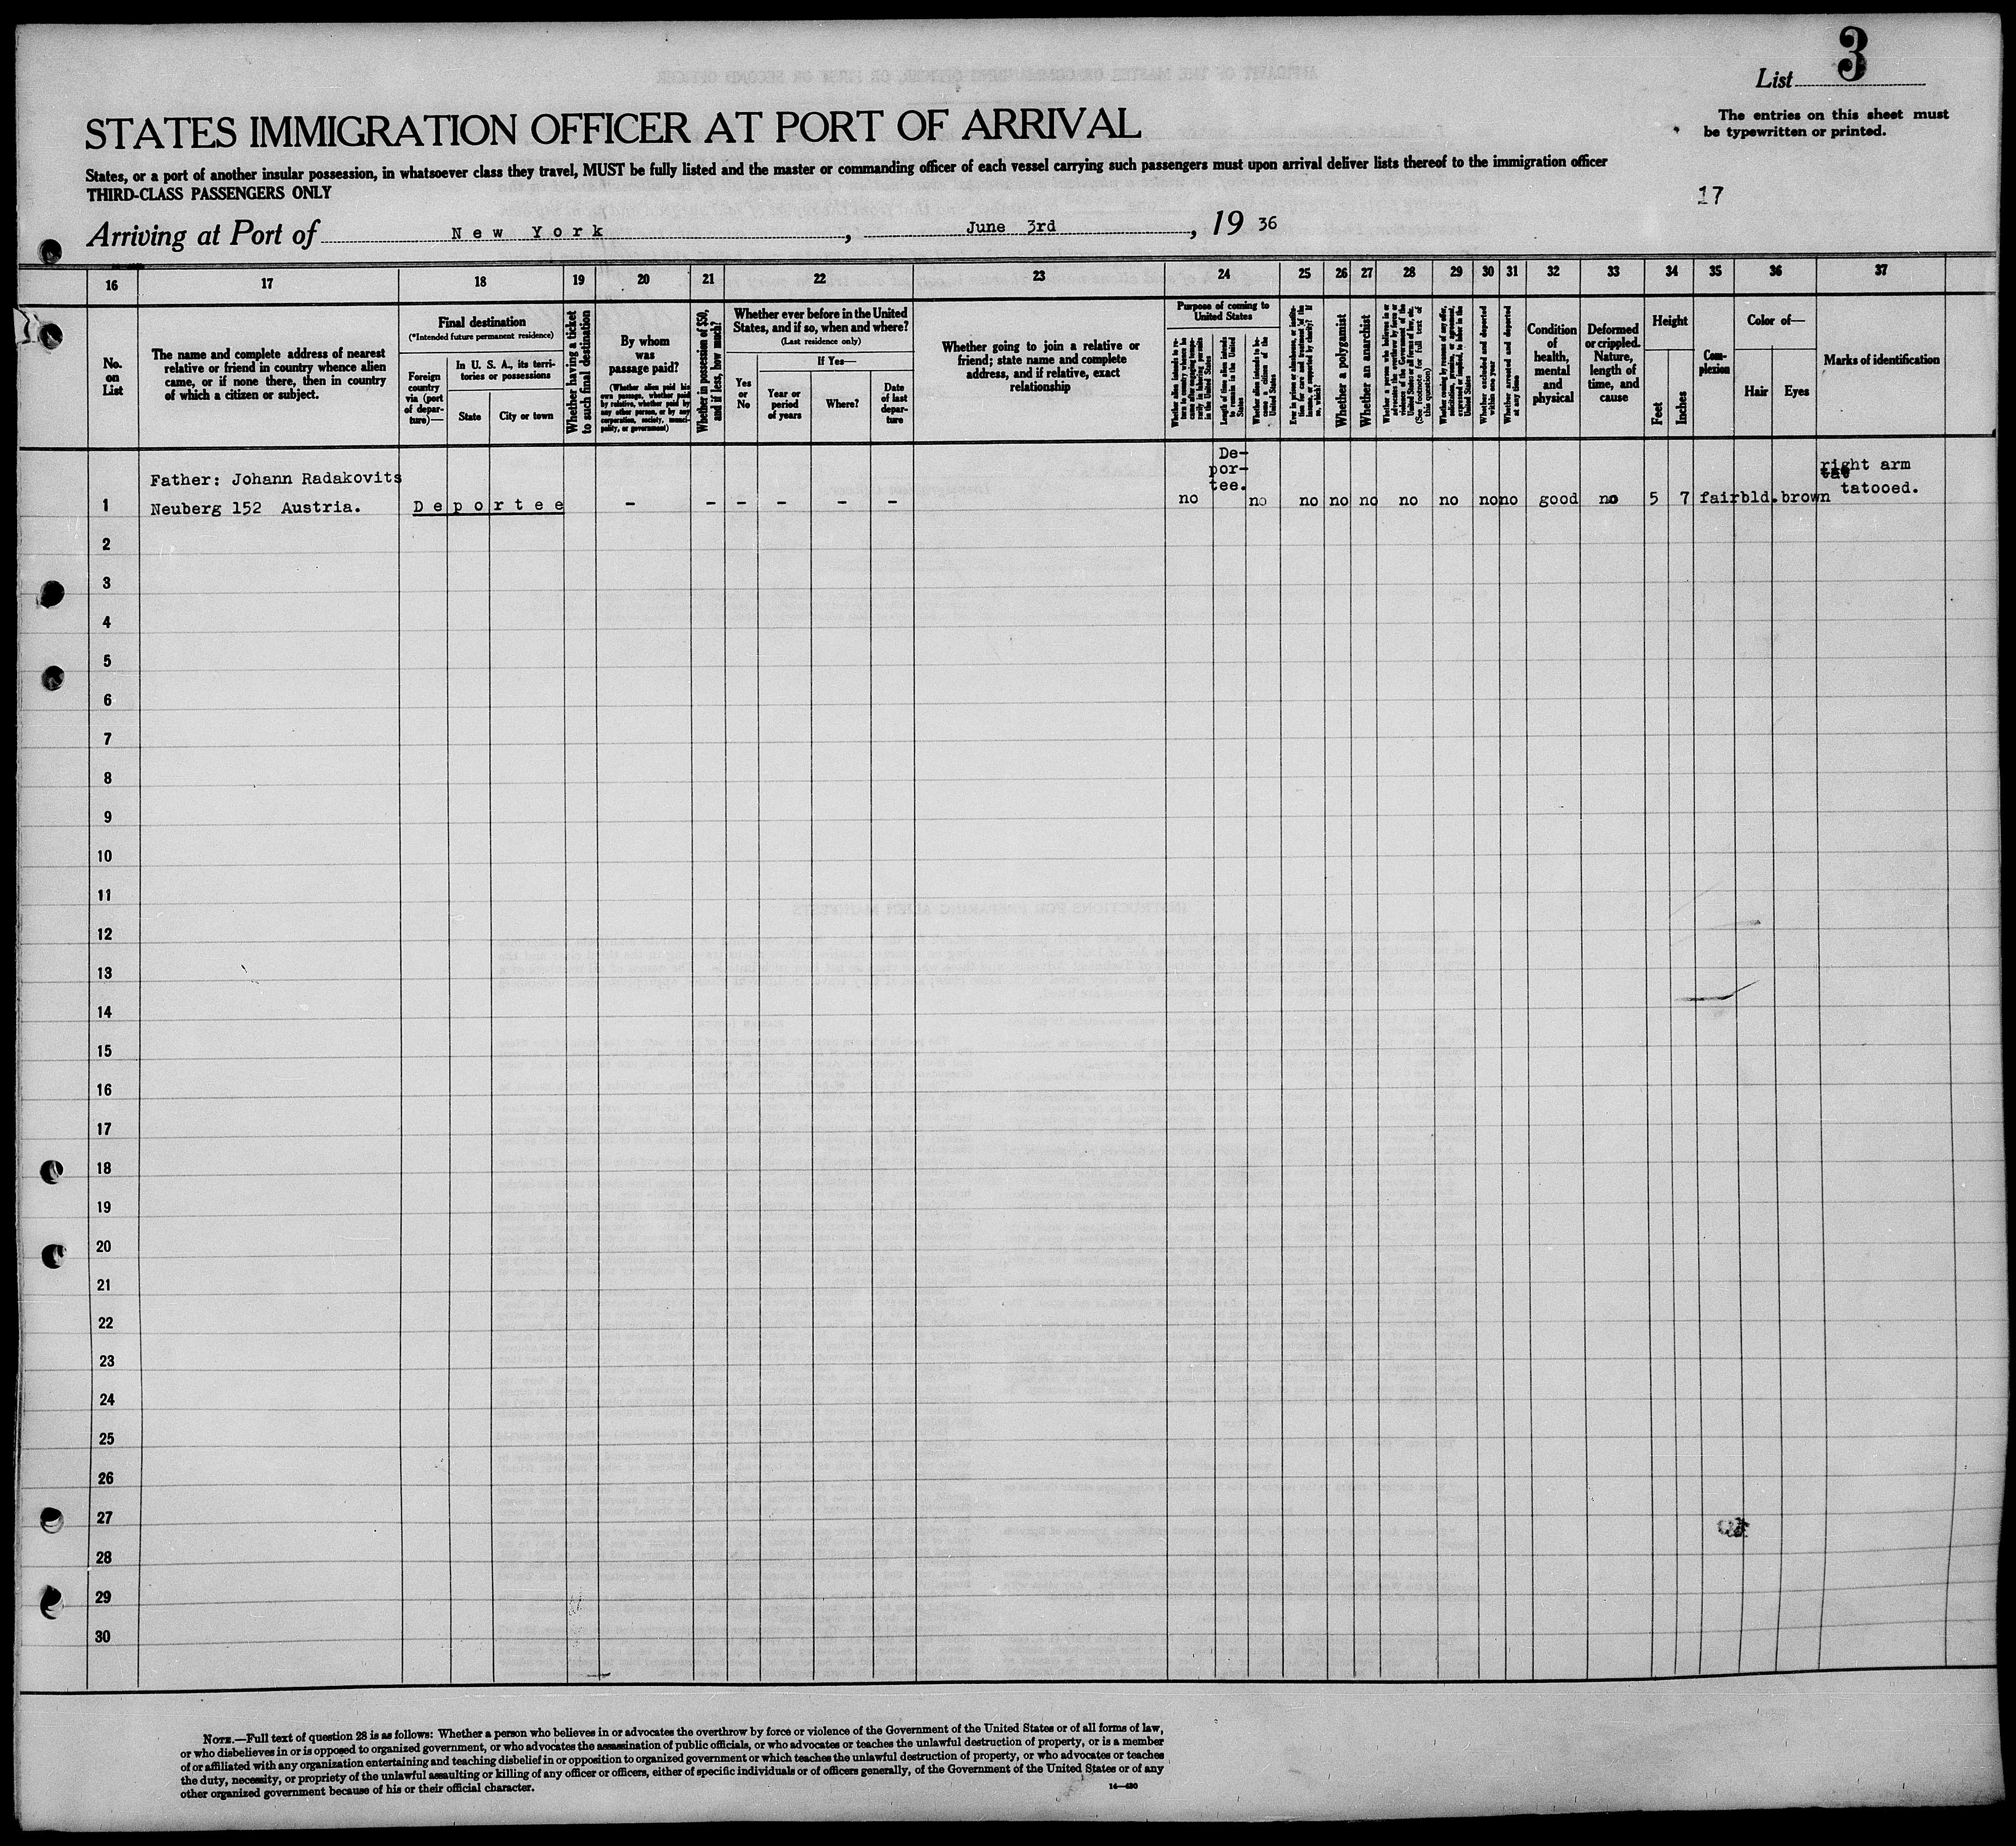 List 3
STATES IMMIGRATION OFFICER AT PORT OF ARRIVAL
The entries on this sheet must
be typewritten or printed.
States, or a port of another insular possession, in whatsoever class they travel, MUST be fully listed and the master or commanding officer of each vessel carrying such passengers must upon arrival deliver lists thereof to the immigration officer
THIRD-CLASS PASSENGERS ONLY
17
Arriving at Port of New York, June 3rd, 19 36
16 17 18 19 20 21 22 23 24 25 26 27 28 29 30 31 32 33 34 35 36 37
No.
on
List
The name and complete address of nearest
relative or friend in country whence alien
came, or if none there, then in country
of which a citizen or subject.
Final destination
(*Intended future permanent residence)
Foreign
country
via (port
of depar-
ture)—
In U. S. A., its terri-
tories or possessions
State
City or town
Whether having a ticket
to such final destination
By whom
was
passage paid?
(Whether alien paid his
own passage, whether paid
by relative, whether paid by
any other person, or by any
corporation, society, munici-
pality, or government)
Whether in possession of $50,
and if less, how much?
Whether ever before in the United
States, and if so, when and where?
(Last residence only)
Yes
or
No
If Yes—
Year or
period
of years
Where?
Date
of last
depar-
ture
Whether going to join a relative or
friend; state name and complete
address, and if relative, exact
relationship
Purpose of coming to
United States
Whether alien intends to re-
turn to country whence he
came after engaging tempo-
rarily in laboring pursuits
in the United States
Length of time alien intends
to remain in the United
States
Whether alien intends to be-
come a citizen of the
United States
Ever in prison or almshouse, or institu-
tion for care and treatment of the
insane, or supported by charity? If
so, which?
Whether a polygamist
Whether an anarchist
Whether a person who believes in or
advocates the overthrow by force or
violence of the Government of the
United States or all forms of law, etc.
(See footnote for full text of
this question)
Whether coming by reason of any offer,
solicitation, promise, or agreement,
expressed or implied, to labor in the
United States
Whether excluded and deported
within one year
Whether arrested and deported
at any time
Condition
of
health,
mental
and
physical
Deformed
or crippled.
Nature,
length of
time, and
cause
Height
Feet
Inches
Com-
plexion
Color of—
Hair
Eyes
Marks of identification
Father: Johann Radakovits
De-
por-
tee.
right arm
1 Neuberg 152 Austria. Deportee - - - - - - no no no no no no no no no good no 5 7 fair bld. brown tatooed.
2
3
4
5
6
7
8
9
10
11
12
13
14
15
16
17
18
19
20
21
22
23
24
25
26
27
28
29
30
NOTE.—Full text of question 28 is as follows: Whether a person who believes in or advocates the overthrow by force or violence of the Government of the United States or of all forms of law,
or who disbelieves in or is opposed to organized government, or who advocates the assassination of public officials, or who advocates or teaches the unlawful destruction of property, or is a member
of or affiliated with any organization entertaining and teaching disbelief in or opposition to organized government or which teaches the unlawful destruction of property, or who advocates or teaches
the duty, necessity, or propriety of the unlawful assaulting or killing of any officer or officers, either of specific individuals or of officers generally, of the Government of the United States or of any
other organized government because of his or their official character.
14—430